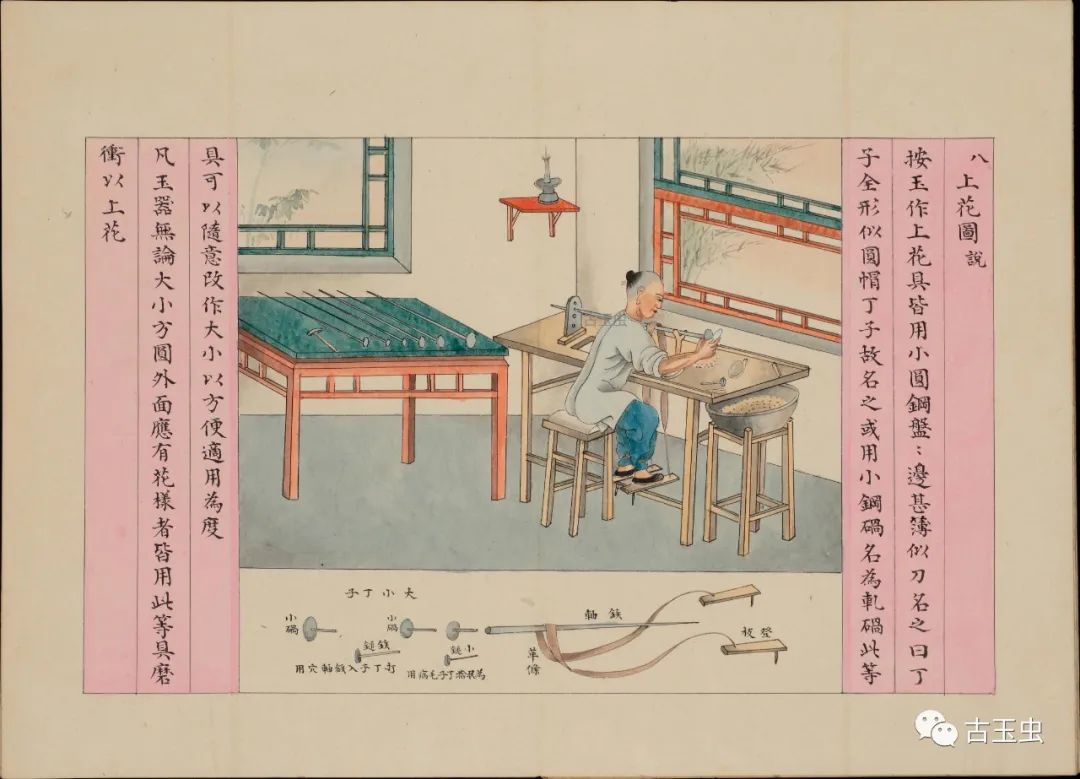 八上花圖說
按玉作上花具皆用小圓鋼盤：邊甚簿似刀名之曰丁
子全形似圓帽丁子故名之或用小鋼碢名為軋碢此等
具可以隨意改作大小以方便適用為度
凡玉器無論大小方圓外面應有花樣者皆用此等具磨
衝以上花
大小丁子
小碢
小碢
鉄鎚
打丁子入鉄軸穴用
小鎚
鉄軸
革條
登板
古玉虫